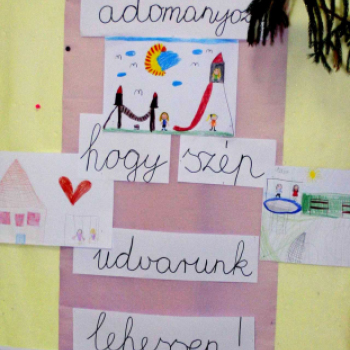 adományoz
hogy szép
udvarunk
lehessen!